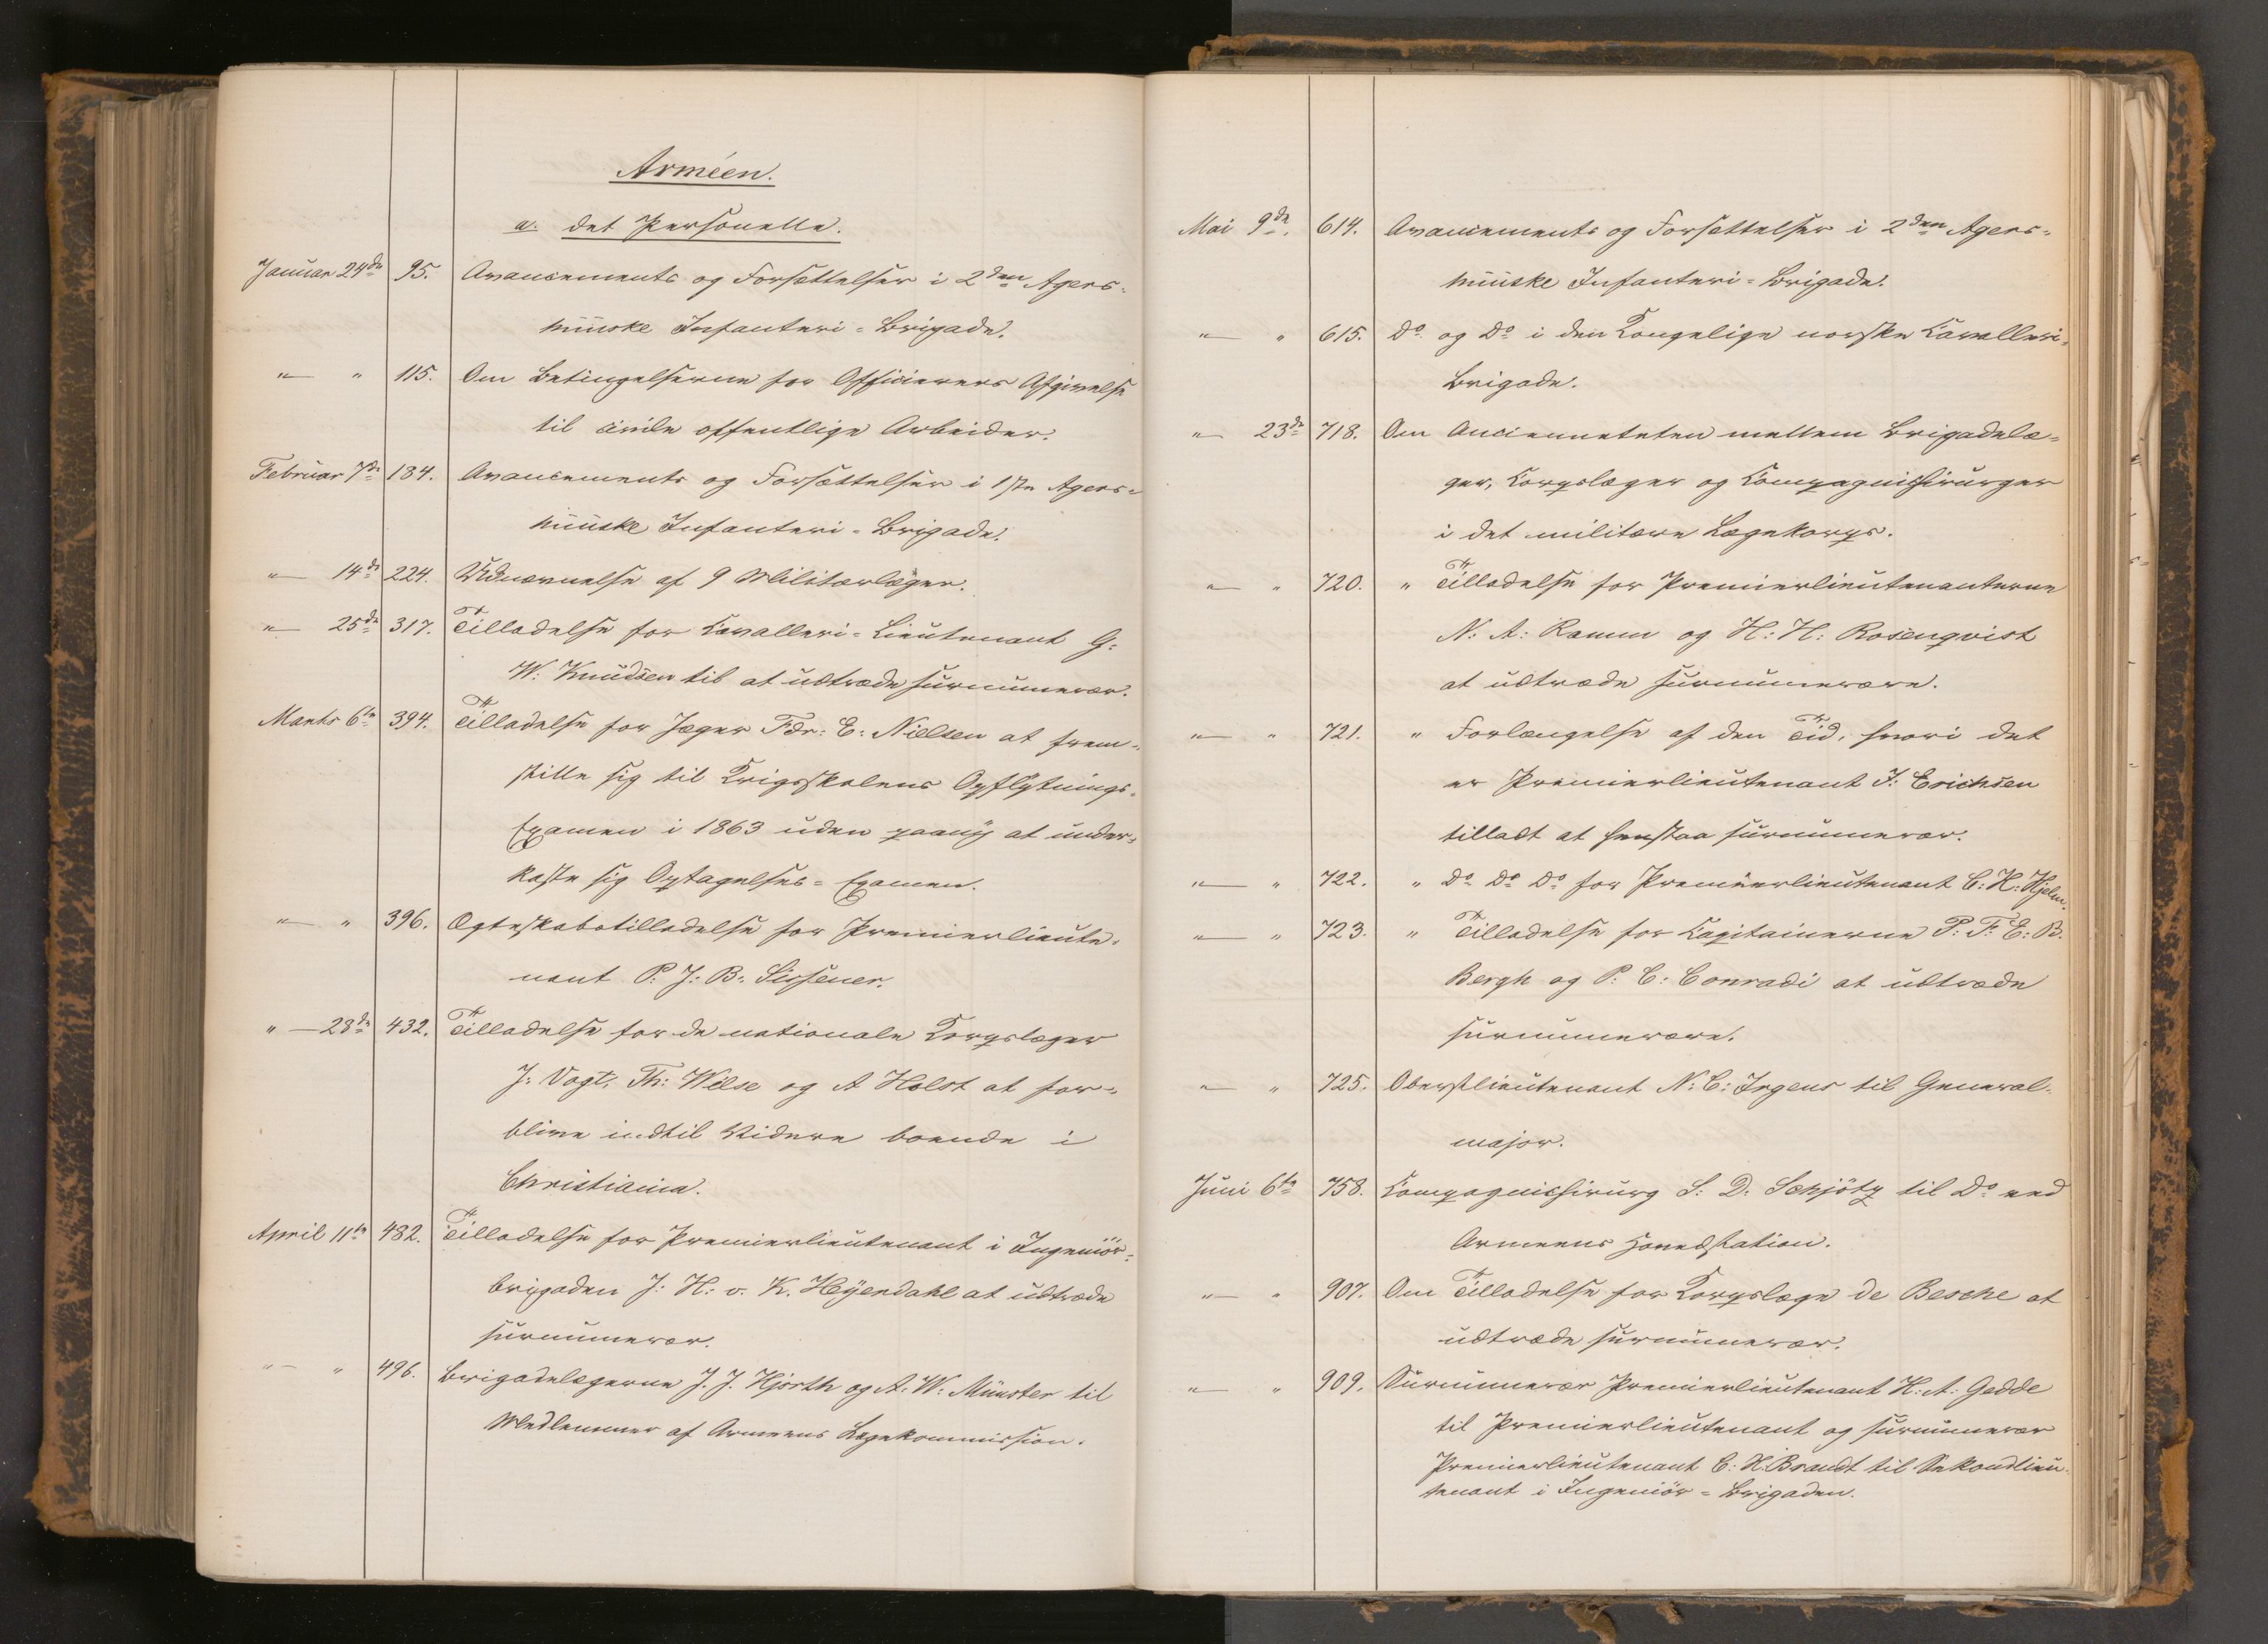 Arméen.
a. det Personelle.
Januar 24de 95. Avancements og Forsættelser i 2den Agers-
huuske Infanteri-Brigade.
" — " 115. Om Betingelserne for Officierers Afgivelse
til civile offentlige Arbeider.
Februar 7de 184. Avancements og Forsættelser i 1ste Agers-
huuske Infanteri-Brigade.
" — 14de 224. Udnævnelse af 9 Militærlæger.
" — 25de 317. Tilladelse for Cavalleri-Lieutenant G:
W: Knudsen til at udtræde surnumerær.
Marts 6te 394. Tilladelse for Jæger Fdr: E: Nielsen at frem-
stille sig til Krigsskolens Opflytnings-
Examen i 1863 uden paany at under-
kaste sig Optagelses-Examen.
" — " 396. Ægteskabstilladelse for Premierlieute-
nant P: J: B: Sissener.
" — 28de 432. Tilladelse for de nationale Korpslæger
J: Vogt, Th: Wilse og A Holst at for-
blive indtil Videre boende i
Christiania.
April 11te 482. Tilladelse for Premierlieutenant i Ingeniör-
brigaden J: H: v. K. Heyerdahl at udtræde
surnumerær.
" — " 496. Brigadelægerne J. J. Hjorth og A: W: Münster til
Medlemmer af Armeens Lægekommission.
Mai 9de. 614. Avancements og Forsættelser i 2den Agers-
huuske Infanteri-Brigade.
" — " 615. Do og Do i den Kongelige norske Cavalleri-
Brigade.
" — 23de 718. Om Ancienneteten mellem Brigadelæ-
ger, Korpslæger og Kompagnichirurger
i det militære Lægekorps.
" — " 720. " Tilladelse for Premierlieutenanterne
N: A: Ramm og H: H: Rosenqvist
at udtræde surnumerære.
" — " 721. " Forlængelse af den Tid, hvori det
er Premierlieutenant J: Erichsen
tilladt at henstaa surnumerær.
" — " 722. " Do Do Do for Premierlieutenant C: H: Hjelm.
" — " 723. " Tilladelse for Capitainerne P: F: E: B.
Bergh og P: C: Conradi at udtræde
surnumerære.
" — " 725. Oberstlieutenant N: C: Irgens til General-
major.
Juni 6te 758. Compagnichirurg S: D: Schjötz til Do ved
Armeens Hovedstation.
" — " 907. Om Tilladelse for Korpslæge de Besche at
udtræde surnumerær.
" — " 909. Surnumerær Premierlieutenant H: A: Gedde
til Premierlieutenant og surnumerær
Premierlieutenant C: H. Brandt til Sekondlieu-
tenant i Ingeniör-Brigaden.